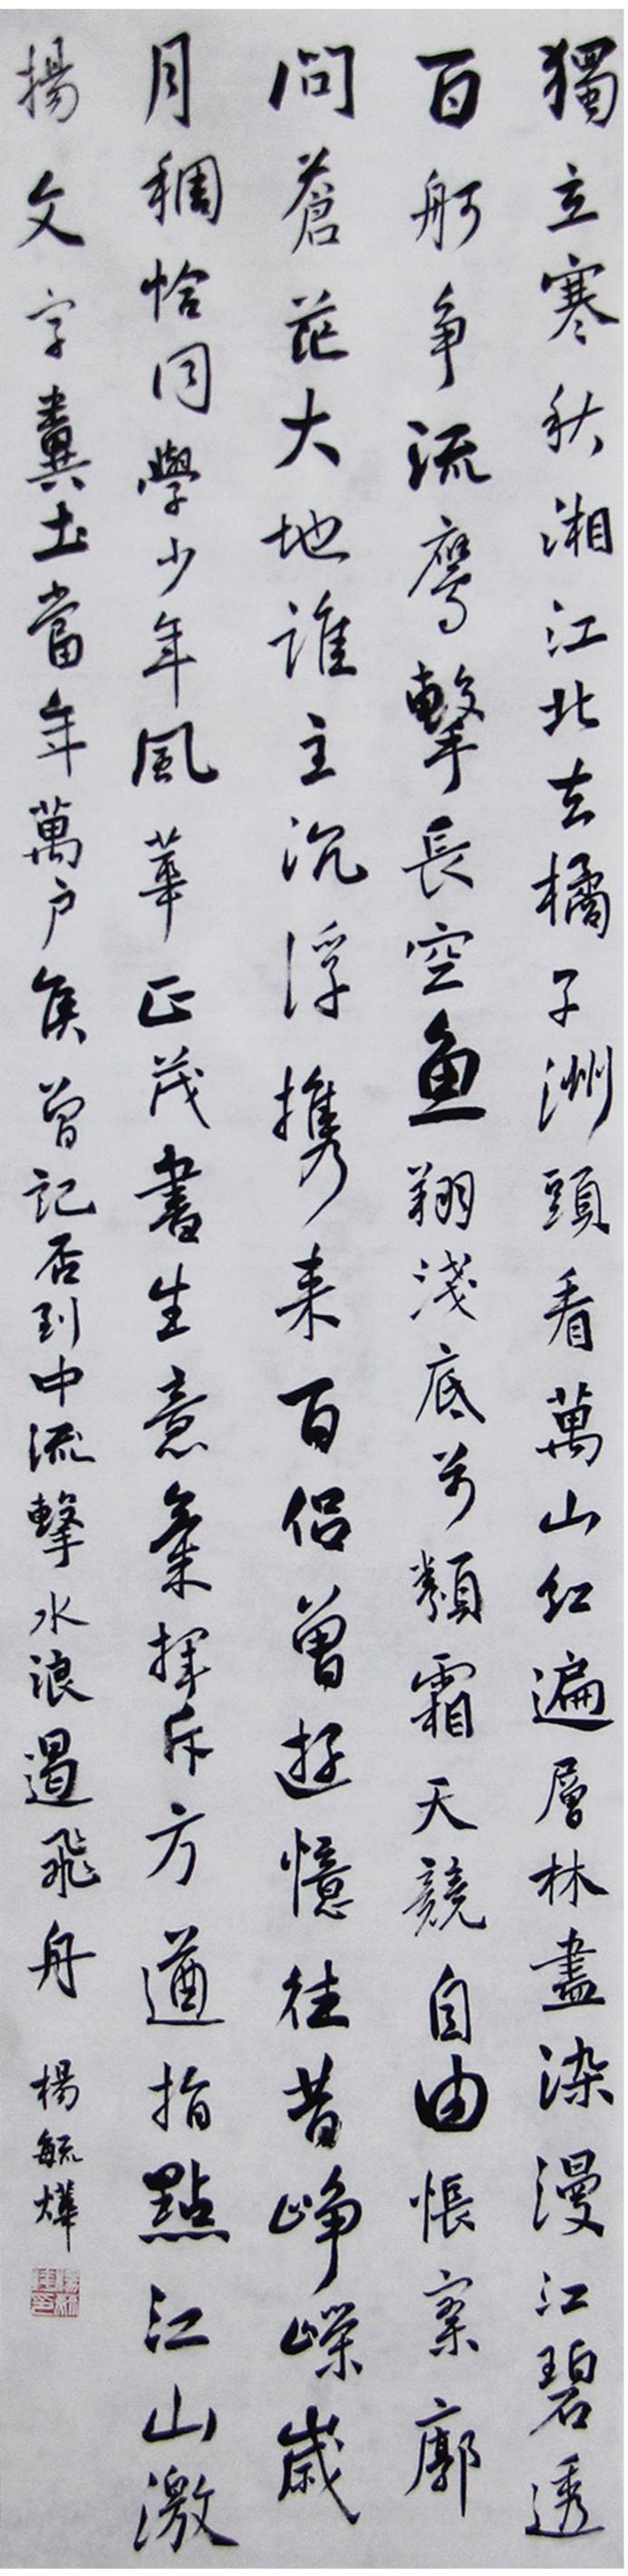 獨立寒秋湘江北去橘子洲頭看萬山紅遍層林盡染漫江碧透
百舸争流鹰擊長空魚翔淺底万類霜天競自由悵寥廓
問蒼茫大地誰主沉浮携来百侣曾遊憶往昔崢嶸歲
月稠恰同學少年風華正茂書生意氣揮斥方遒指點江山激
揚文字糞土當年萬户侯曾記否到中流擊水浪遏飛舟
楊毓燁